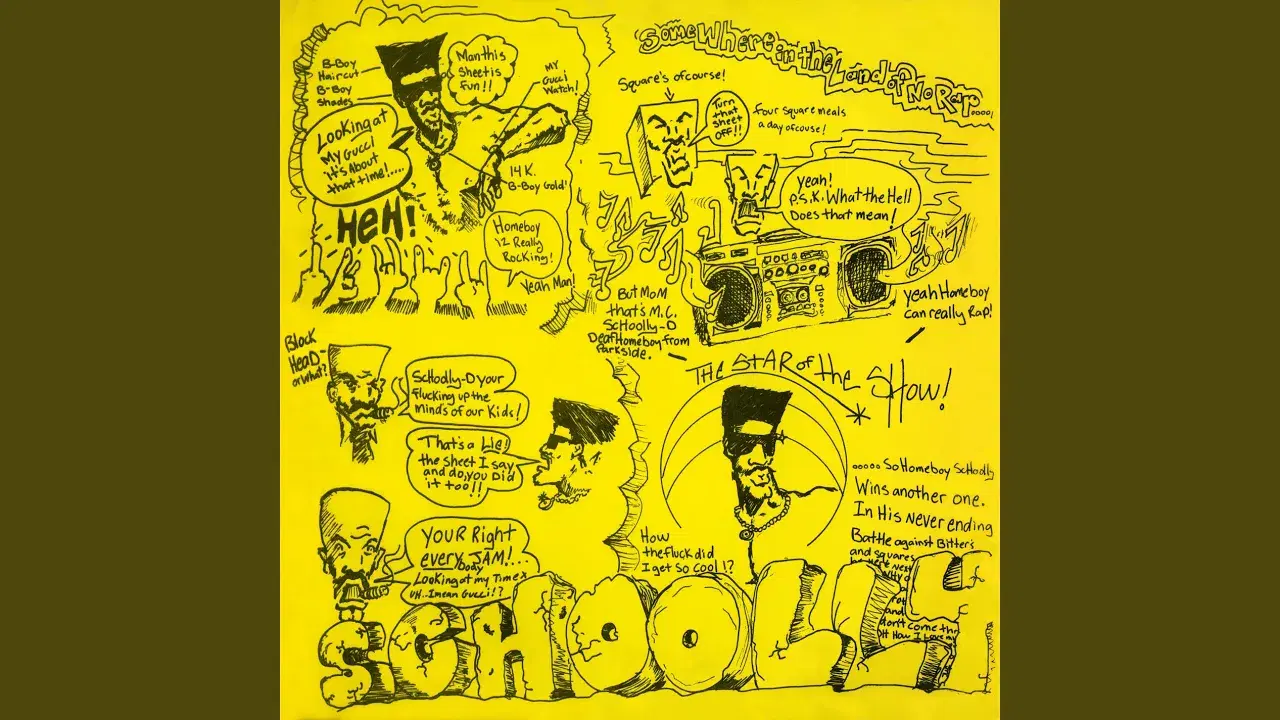 B-Boy
Haircut
B-Boy
Shades
Man this
Sheet is
fun!!
MY
Gucci
Watch!
LooKing at
My Gucci
it's About
that time!....
14 K.
B-Boy Gold!
HeH!
Homeboy
iz Really
Rocking!
Yeah Man!
Some Where in the Land of No Rap.....
Square's ofcourse!
Turn
that
Sheet
OFF!!
four square meals
a day ofcouse!
yeah!
P.S.K. What the Hell
Does that mean!
But MoM
that's M.C.
ScHoolly-D
Def Homeboy from
Parkside.
yeah Homeboy
can really Rap!
Block
HeaD-
or What?
ScHoolly-D your
flucking up the
minds of our Kids!
That's a Lie!
the sheet I say
and do, you Did
it too!!
YOUR Right
every body JAM!....
Looking at my Timex
UH..I mean Gucci!?
THE STAR of the SHow!
How
the fluck did
I get So Cool!?
..... So Homeboy ScHoolly
Wins another one.
In His Never ending
Battle against Bitter's
and squares
and
don't come thr
How I Love my
SCHOOLLY